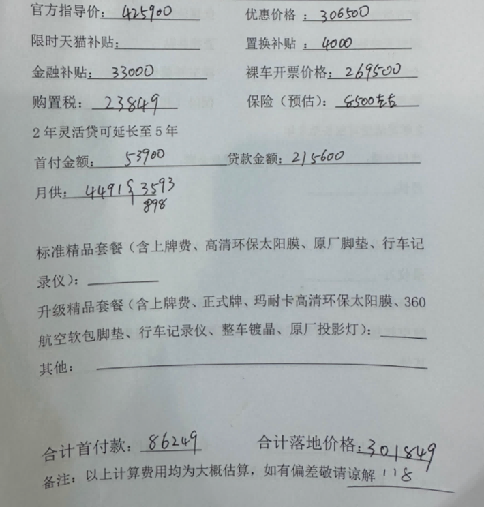 官方指导价：425900 优惠价格：306500
限时天猫补贴： 置换补贴：4000
金融补贴：33000 裸车开票价格：269500
购置税：23849 保险（预估）：8500左右
2年灵活贷可延长至5年
首付金额：53900 贷款金额：215600
月供：4491 3593
898
标准精品套餐（含上牌费、高清环保太阳膜、原厂脚垫、行车记
录仪）：
升级精品套餐（含上牌费、正式牌、玛耐卡高清环保太阳膜、360
航空软包脚垫、行车记录仪、整车镀晶、原厂投影灯）：
其他：
合计首付款：86249 合计落地价格：301849
备注：以上计算费用均为大概估算，如有偏差敬请谅解